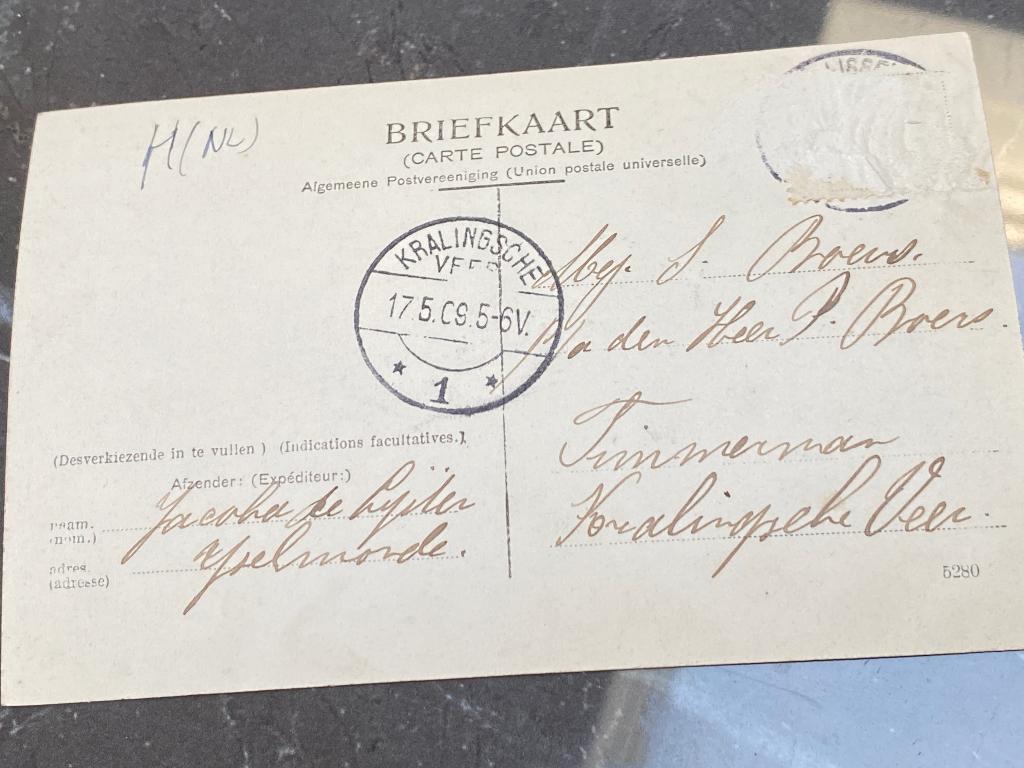 H (NL)
BRIEFKAART
(CARTE POSTALE)
Algemeene Postvereeniging (Union postale universelle)
KRALINGSCHE
VEER
17.5.09.5-6V.
1
Mej. S. Boers.
p/a den Heer P. Boers.
Timmerman
Kralingsche Veer.
(Desverkiezende in te vullen) (Indications facultatives.)
Afzender: (Expéditeur:)
naam. Jacoba de
(nom.)
adres. Yselmonde.
(adresse)
5280